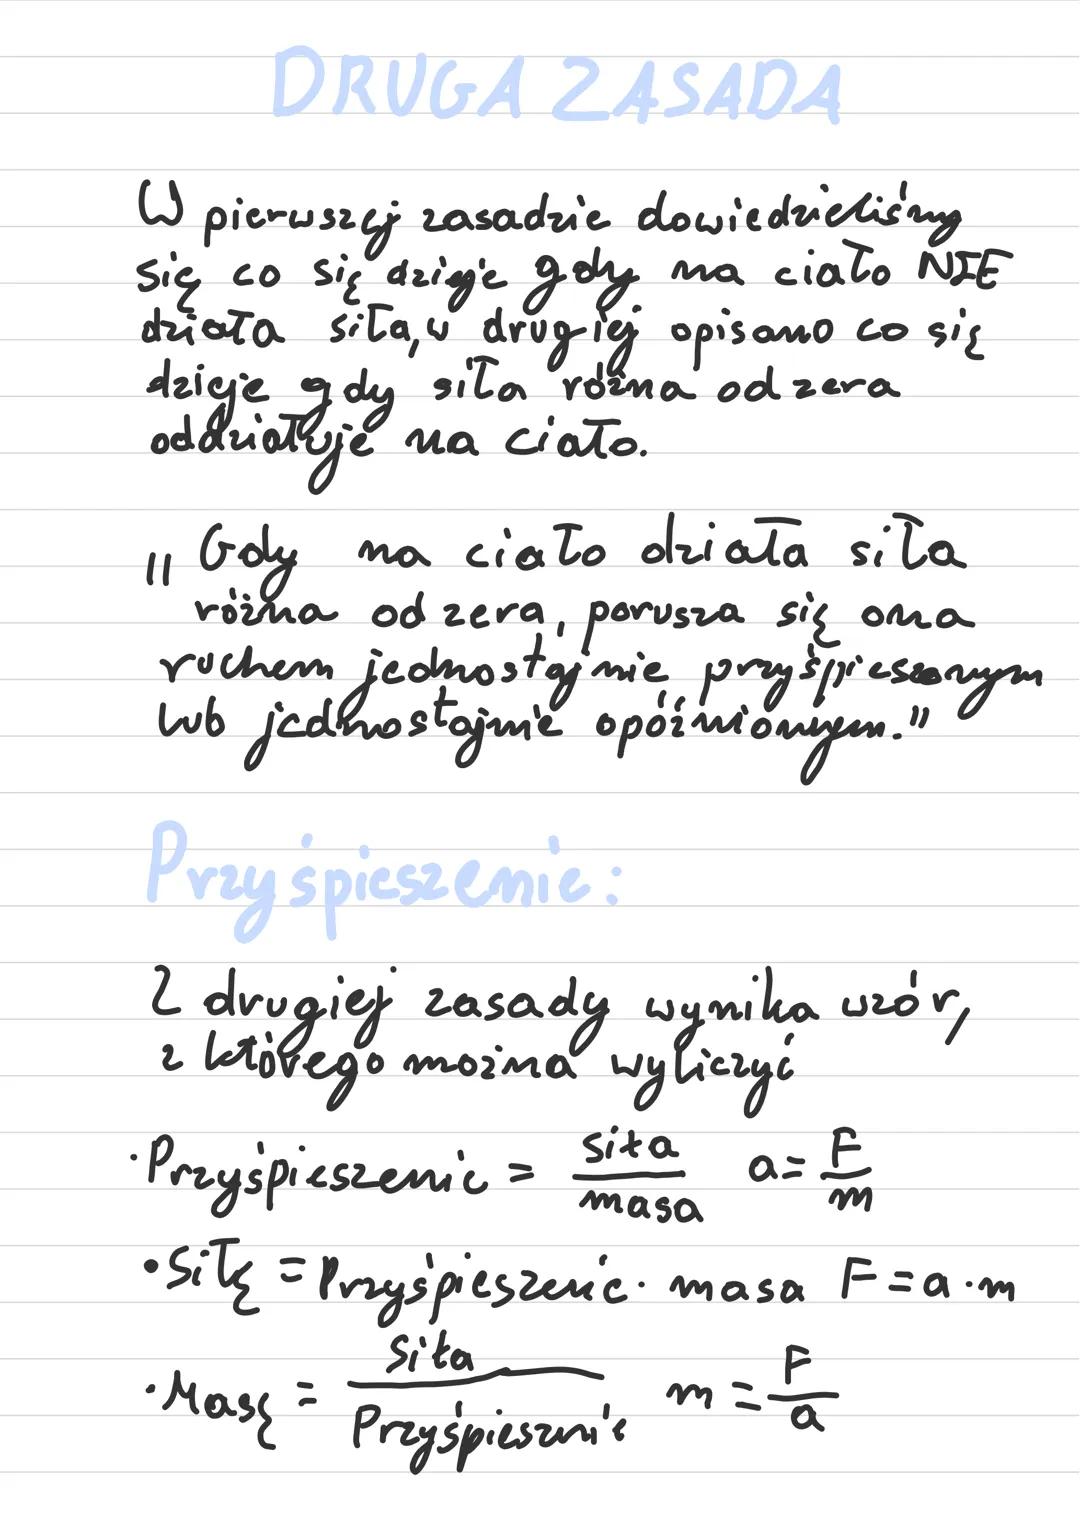 DRUGA ZASADA
W pierwszej zasadzie dowiedzieliśmy
się co się dzieje gdy na ciało NIE
działa siła, w drugiej opisano co się
dzieje gdy siła różna od zera
oddziałuje na ciało.
„Gdy na ciało działa siła
różna od zera, porusza się ona
ruchem jednostajnie przyśpieszonym
lub jednostajnie opóźnionym."
Przyśpieszenie:
Z drugiej zasady wynika wzór,
z którego można wyliczyć
·Przyśpieszenie = siła/masa a=F/m
•Siłę = Przyśpieszenie · masa F=a·m
·Masę = Siła/Przyśpieszenie m=F/a